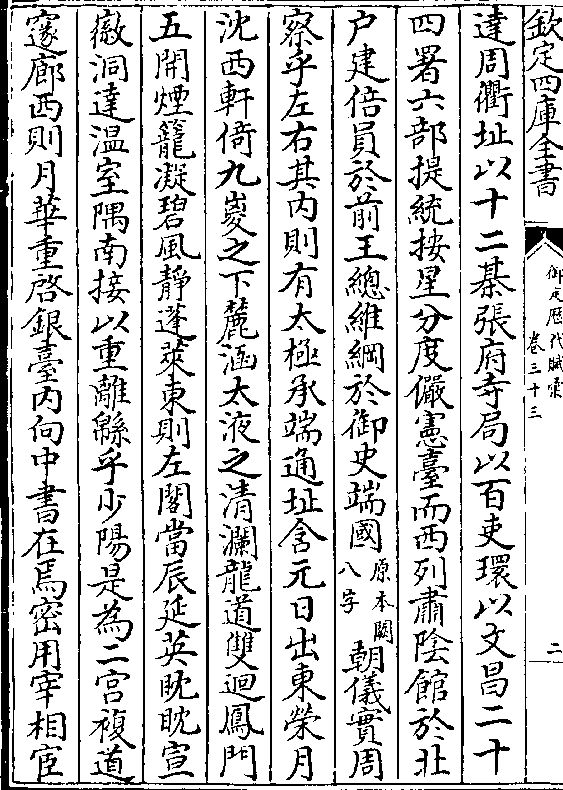 欽定四庫全書
御定歷代賦彙
卷三十三
二
達周衢址以十二棊張府寺局以百吏環以文昌二十
四署六部提統按星分度儼憲臺而西列肅陰館於北
户建倍員於前王總維綱於御史端國原本闕八字朝儀實周
察乎左右其内則有太極承端通址含元日出東榮月
沈西軒倚九嵕之下麓涵太液之清瀾龍道雙迴鳳門
五開煙籠凝碧風靜蓬萊東則左閣當辰延英眈眈宣
徽洞達温室隅南接以重離緜乎少陽是為二宫複道
䆳廊西則月華重啓銀臺内向中書在焉密用宰相宦